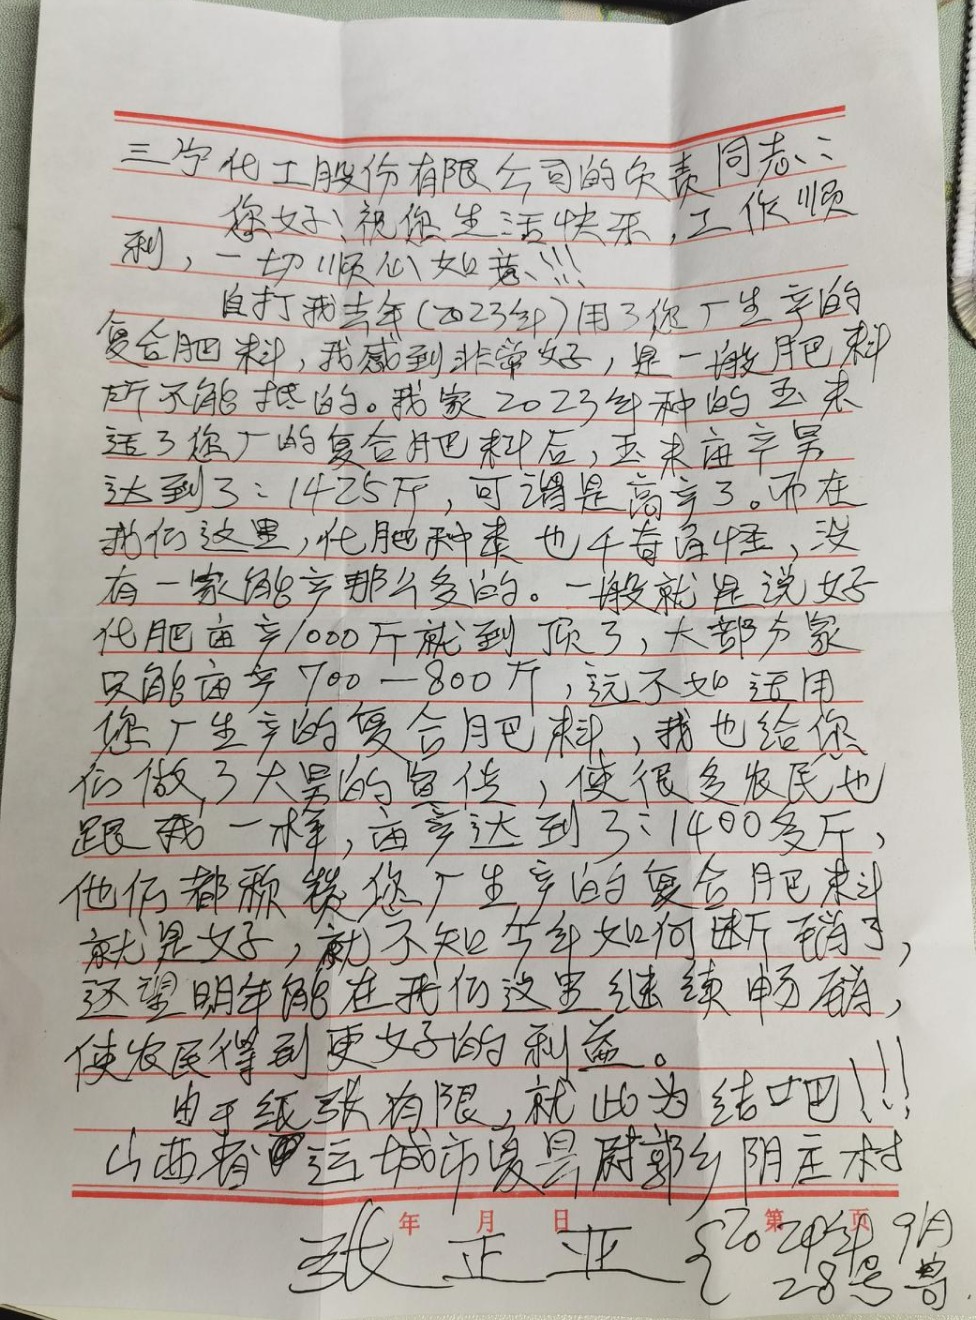 三宁化工股份有限公司的负责同志:
您好、祝您生活快乐,工作顺
利,一切顺心如意!!!
自打我去年(2023年)用了您厂生产的
复合肥料,我感到非常好,是一般肥料
所不能抵的。我家2023年种的玉米
适了您厂的复合肥料后,玉米亩产量
达到了:1425斤,可谓是高产了。而在
我们这里,化肥种类也千奇百怪,没
有一家能产那么多的。一般就是说好
化肥亩产1000斤就到顶了,大部分家
只能亩产700—800斤,远不如适用
您厂生产的复合肥料,我也给您
们做了大量的宣传,使很多农民也
跟我一样,亩产达到了:1400多斤,
他们都称赞您厂生产的复合肥料
就是好,就不知今年如何断销了,
还望明年能在我们这里继续畅销,
使农民得到更好的利益。
由于纸张有限,就此为结吧!!!
山西省运城市夏县尉郭乡阴庄村
年 月 日 第 页
张正亚 2024年9月
28号